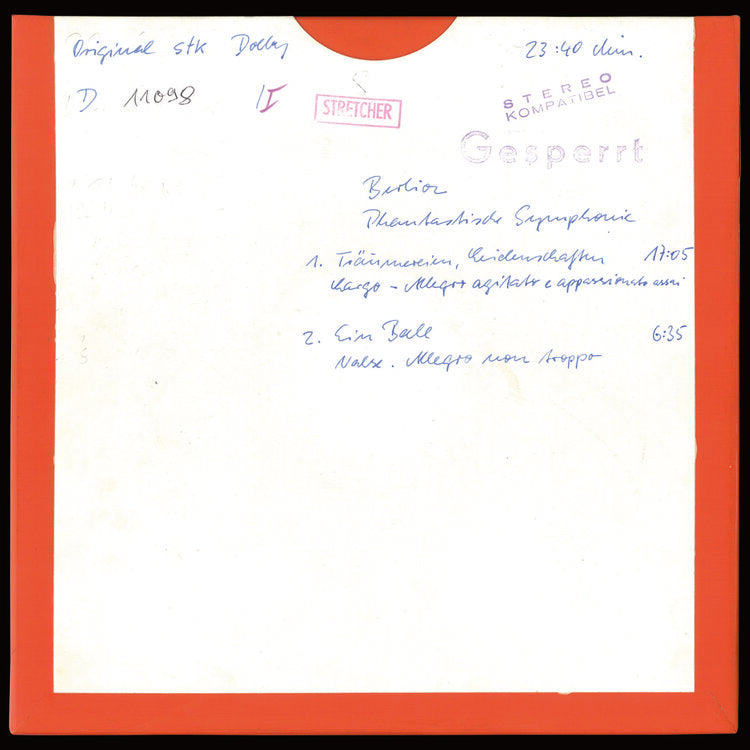 Original stk Dolby
23:40 Min.
D 11098 I
STRETCHER
STEREO
KOMPATIBEL
Gesperrt
Berlioz
Phantastische Symphonie
1. Träumereien, Leidenschaften 17:05
Largo - Allegro agitato e appassionato assai
2. Ein Ball 6:35
Valse. Allegro non troppo